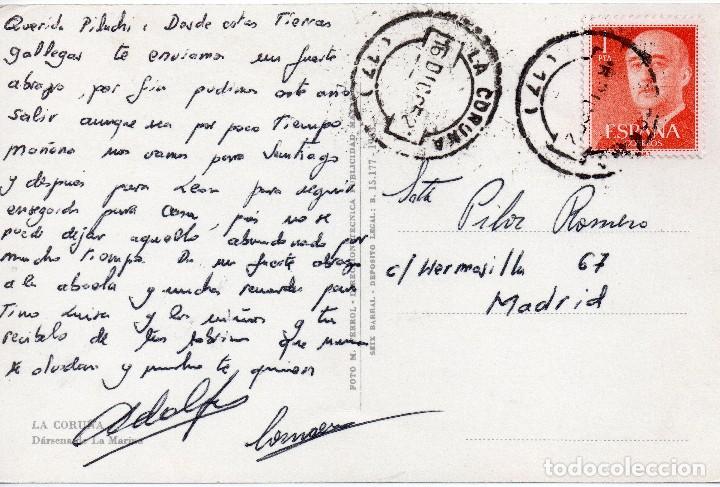 Querida Piluchi: Desde estas Tierras
gallegas te enviamos un fuerte
abrazo, por fin pudimos este año
salir aunque sea por poco Tiempo
mañana nos vamos para Santiago
y despues para Leon para seguir
enseguida para casa, pues no se
puede dejar aquello abandonado por
mucho Tiempo. Da un fuerte abrazo
a la abuela y muchos recuerdos para
Tino Luisa y los niños y tu
recibelo de tus sobrinos que nunca
te olvidan y mucho te quieren
Adolfo
LA CORUÑA
Dársena de La Marina
FOTO M. FERROL - DIRECCION TECNICA PUBLICIDAD
SEIX BARRAL - DEPOSITO LEGAL: B. 15.177
LA CORUÑA
16 DIC
(77)
(77)
1
PTA
ESPAÑA
CORREOS
Srta
Pilar Romero
c/ Hermosilla 67
Madrid
todocoleccion